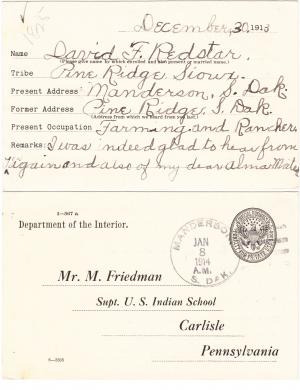 December, 30, 1913
Name David F. Redstar.
(Please give name by which enrolled and also present or married name.)
Tribe Pine Ridge Sioux.
Present Address Manderson, S. Dak.
Former Address Pine Ridge, S. Dak.
(Address from which we heard from you last.)
Present Occupation Farming and Rancher
Remarks: I was indeed glad to hear from
again and also of my dear Alma Mater
1-567 a
Department of the Interior.
MANDERSON
JAN
8
1914
A.M.
S. DAK.
Mr. M. Friedman
Supt. U. S. Indian School
Carlisle
Pennsylvania